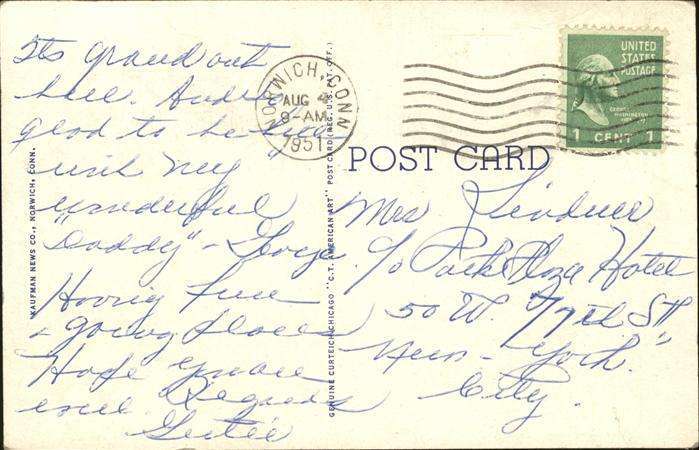 Its grand out
here. And
glad to be here
with my
wonderful
"Daddy" - George
Having fun
+ going places
Hope you are
well. Regards
Gertie
NORWICH, CONN
AUG 4
9-AM
1951
UNITED
STATES
POSTAGE
GEORGE
WASHINGTON
1 CENT 1
POST CARD
Mrs Lindner
c/o Park Plaza Hotel
50 W. 77th St
New - York
City.
KAUFMAN NEWS CO., NORWICH, CONN.
GENUINE CURTEICH CHICAGO "C.T. AMERICAN ART" POST CARD (REG. U.S. PAT. OFF.)